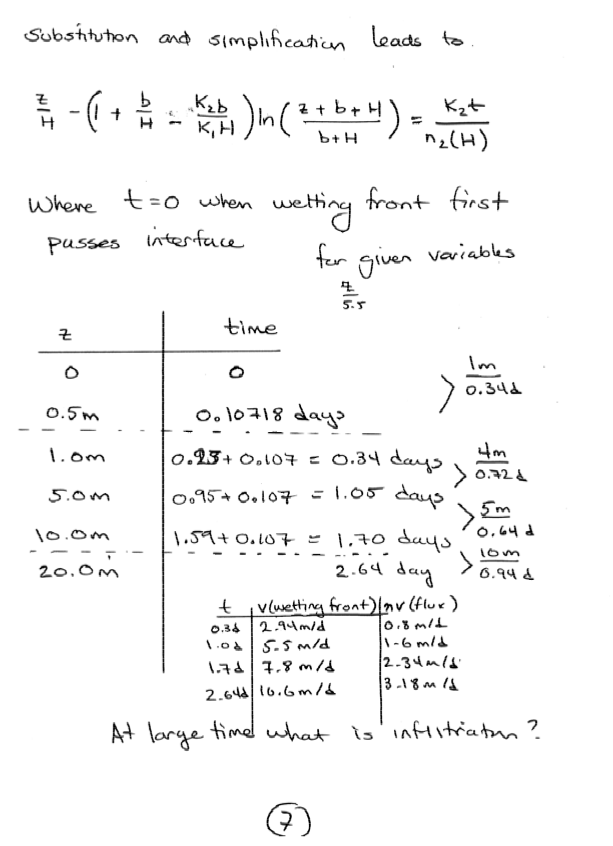 Substitution and simplification leads to.
z/H - (1 + b/H - K₂b/K₁H) ln( (z + b + H)/(b+H) ) = K₂t/n₂(H)
Where t=0 when wetting front first
passes interface
for given variables
z/5.5
z | time
0 | 0
> 1m/0.34d
0.5m | 0.10718 days
1.0m | 0.23+0.107 = 0.34 days
> 4m/0.72d
5.0m | 0.95+0.107 = 1.05 days
> 5m/0.64d
10.0m | 1.59+0.107 = 1.70 days
> 10m/0.94d
20.0m | 2.64 day
t | v(wetting front) | nv (flux)
0.3d | 2.94m/d | 0.8 m/d
1.0d | 5.5 m/d | 1.6 m/d
1.7d | 7.8 m/d | 2.34m/d
2.64d | 10.6m/d | 3.18 m/d
At large time what is infiltration?
7